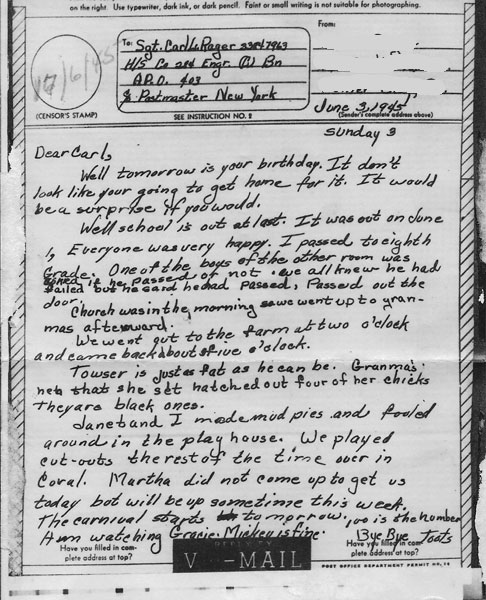 on the right. Use typewriter, dark ink, or dark pencil. Faint or small writing is not suitable for photographing.
To:
From:
Sgt. Carl L Rager 33847963
H/S Co 284 Engr. (C) Bn
A.P.O. 403
℅ Postmaster New York
June 3, 1945
17/6/45
(CENSOR'S STAMP)
SEE INSTRUCTION NO. 2
(Sender's complete address above)
Sunday 3
Dear Carl,
Well tomorrow is your birthday. It don't
look like your going to get home for it. It would
be a surprise if you would.
Well school is out at last. It was out on June
1, Everyone was very happy. I passed to eighth
Grade. One of the boys of the other room was
asked if he passed or not. we all knew he had
failed but he said he had passed, Passed out the
door.
Church was in the morning so we went up to gran-
mas afterward.
We went out to the farm at two o'clock
and came back about five o'clock.
Towser is just as fat as he can be. Granma's
hen that she set hatched out four of her chicks
They are black ones.
Janet and I made mud pies and fooled
around in the play house. We played
cut-outs the rest of the time over in
Coral. Martha did not come up to get us
today bot will be up sometime this week.
The carnival starts tomorrow, 100 is the number
watching Gracie. Mickey is fine.
Bye Bye
Toots
Have you filled in com-
plete address at top?
V-MAIL
Have you filled in com-
plete address at top?
POST OFFICE DEPARTMENT PERMIT NO.